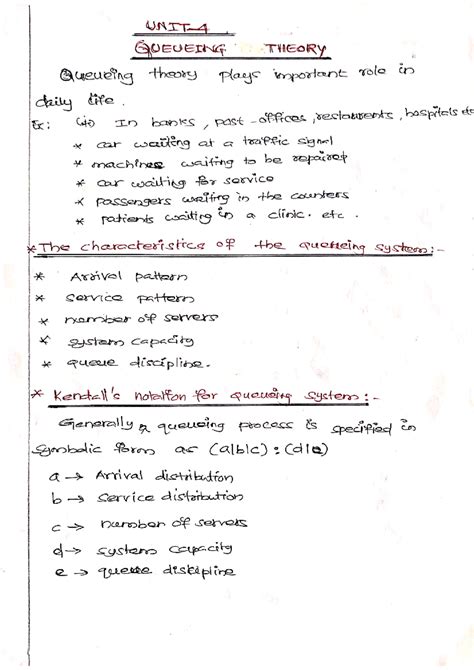 UNIT-4
QUEUEING THEORY
Queueing theory plays important role in
daily life.
Ex: (*) In banks, post-offices, restaurants, hospitals etc
* car waiting at a traffic signal
* machines waiting to be repaired
* car waiting for service
* passengers waiting in the counters
* patients waiting in a clinic. etc.
* The characteristics of the queueing system:-
* Arrival pattern
* service pattern
* number of servers
* system capacity
* queue discipline.
* Kendall's notation for queueing system:-
Generally queueing process is specified in
symbolic form as (a|b|c):(d|e)
a → Arrival distribution
b → service distribution
c → number of servers
d → system capacity
e → queue discipline